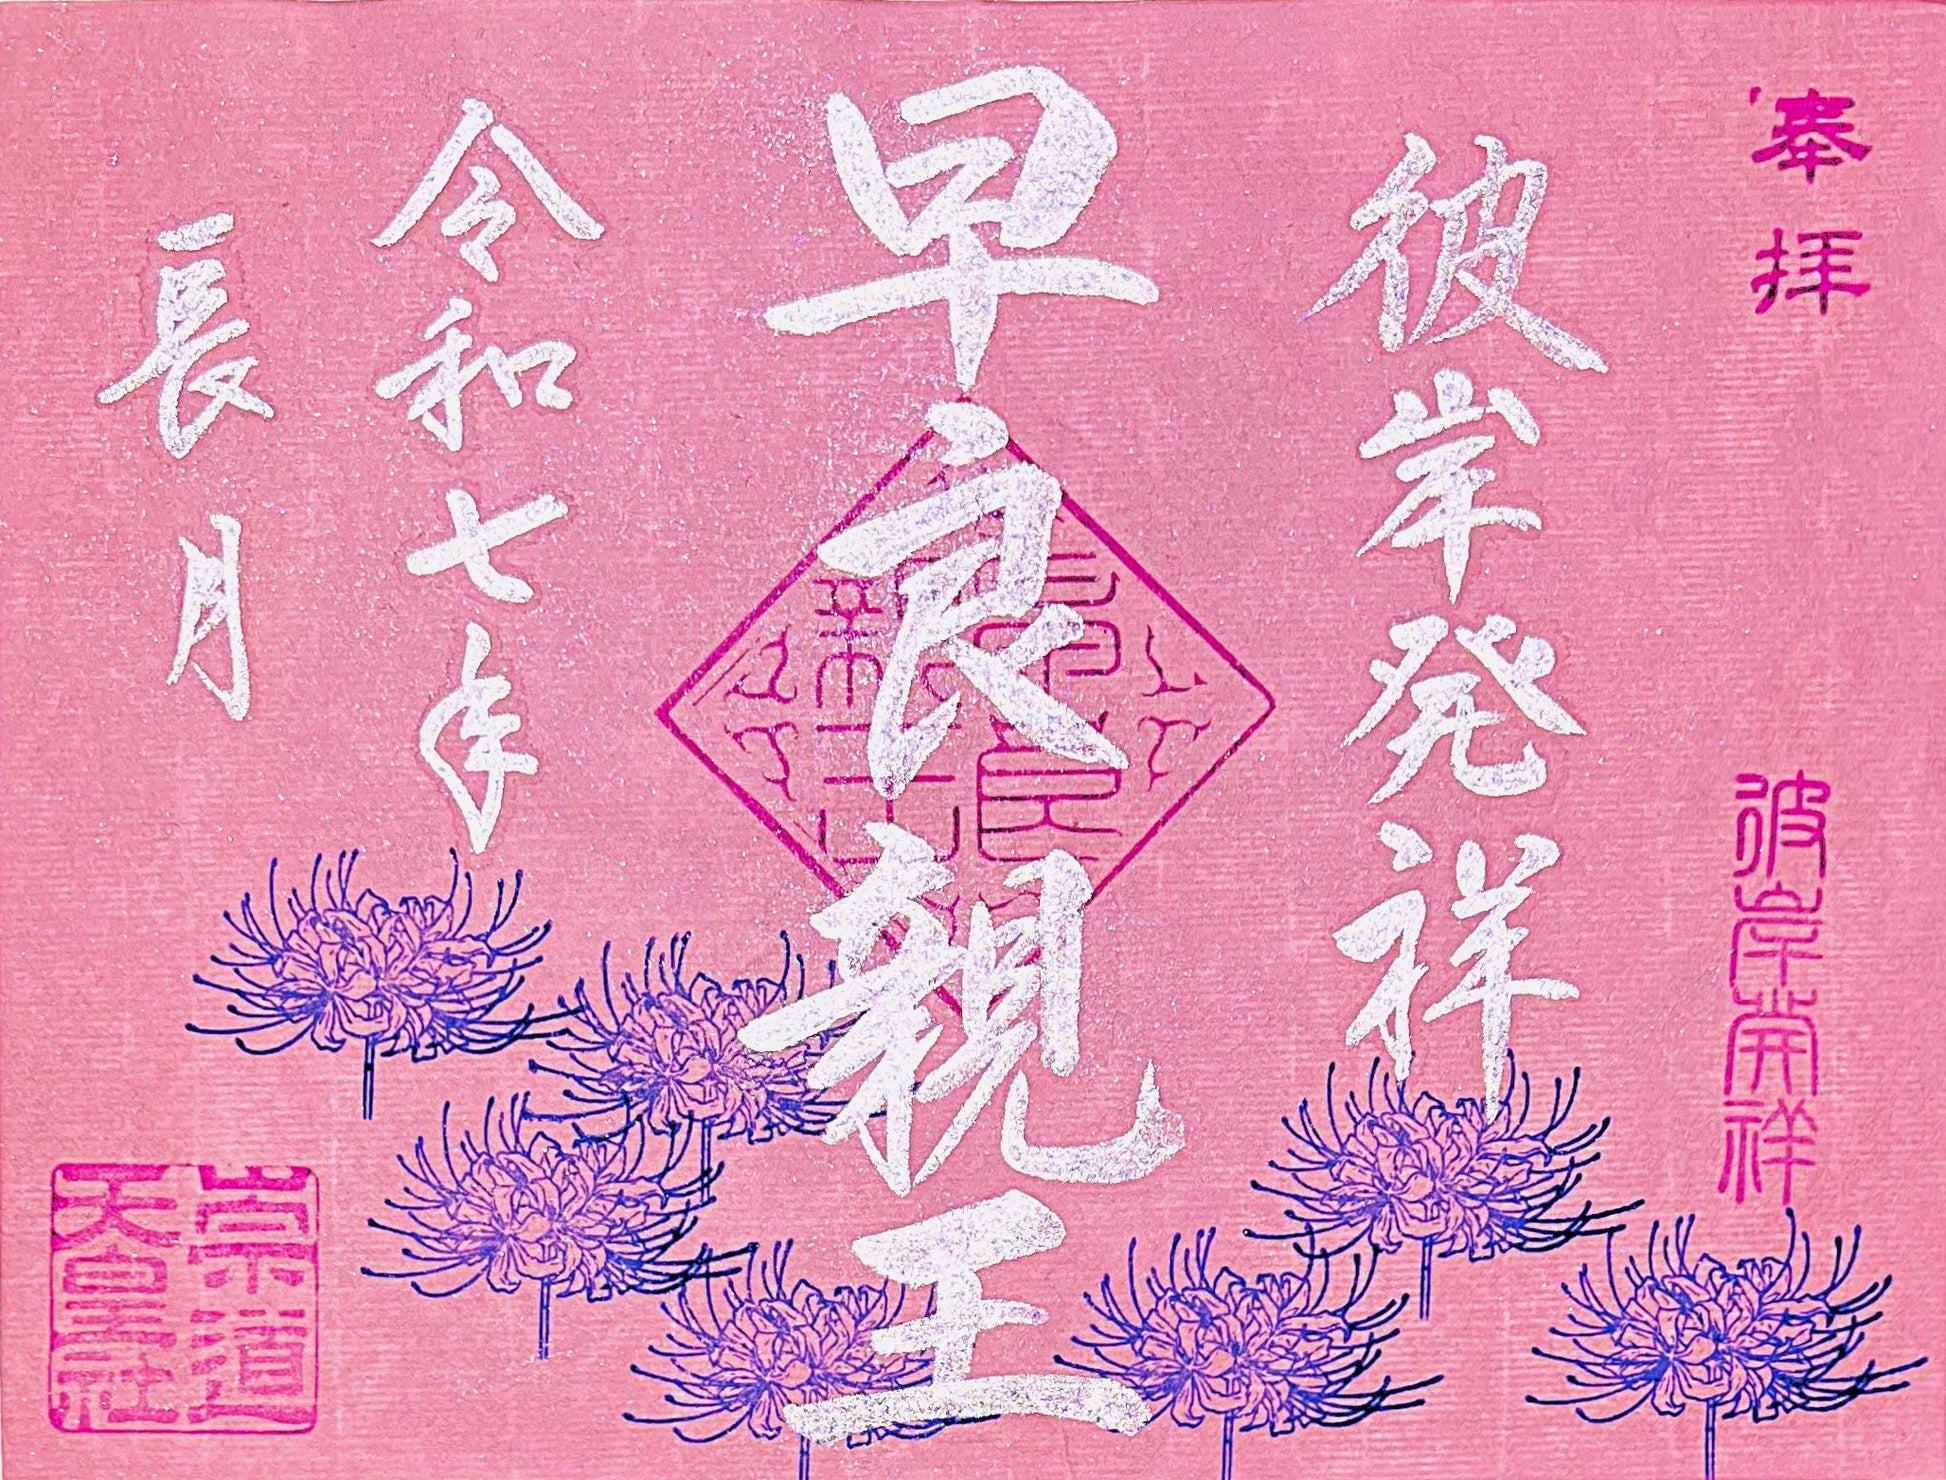 奉拝
彼岸開祥
彼岸発祥
早良親王
早良
親王
令和七年
長月
崇道
天皇社